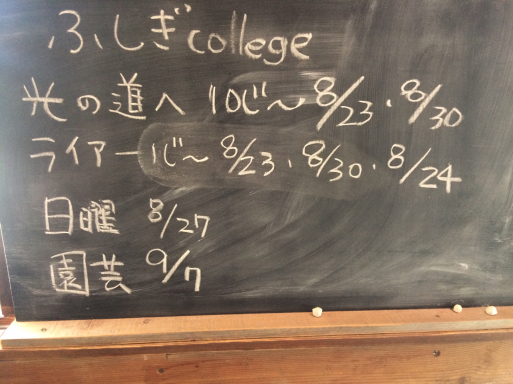 ふしぎcollege
光の道へ 10じ〜 8/23、8/30
ライアー 1じ〜 8/23、8/30、8/24
日曜 8/27
園芸 9/7